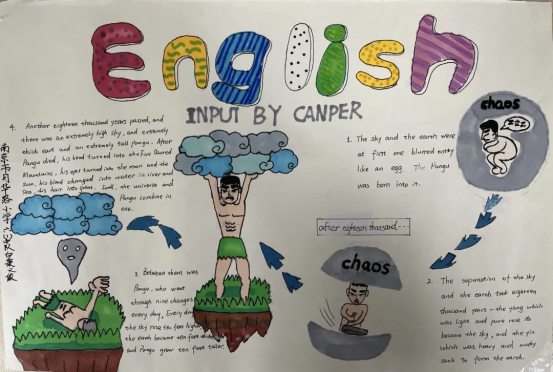 English
INPUT BY CANPER
chaos
ZZZ
1. The sky and the earth were
at first one blurred entity
like an egg. The Pangu
was born into it.
after eighteen thousand...
chaos
2. The separation of the sky
and the earth took eighteen
thousand years - the yang which
was light and pure rose to
become the sky, and the yin
which was heavy and murky
sank to form the earth.
3. Between them was
Pangu, who went
through nine changes
every day. Every day
the sky rose ten feet higher,
the earth became ten feet
and Pangu grew ten feet taller.
4. Another eighteen thousand years passed, and
there was an extremely high sky, and extremely
thick earth and an extremely tall Pangu. After
Pangu died, his head turned into the Five Sacred
Mountains, his eyes turned into the moon and the
sun, his blood changed into water in river and
sea, his hair into grass. the universe and
Pangu combine in
one.
南京市月华路小学六